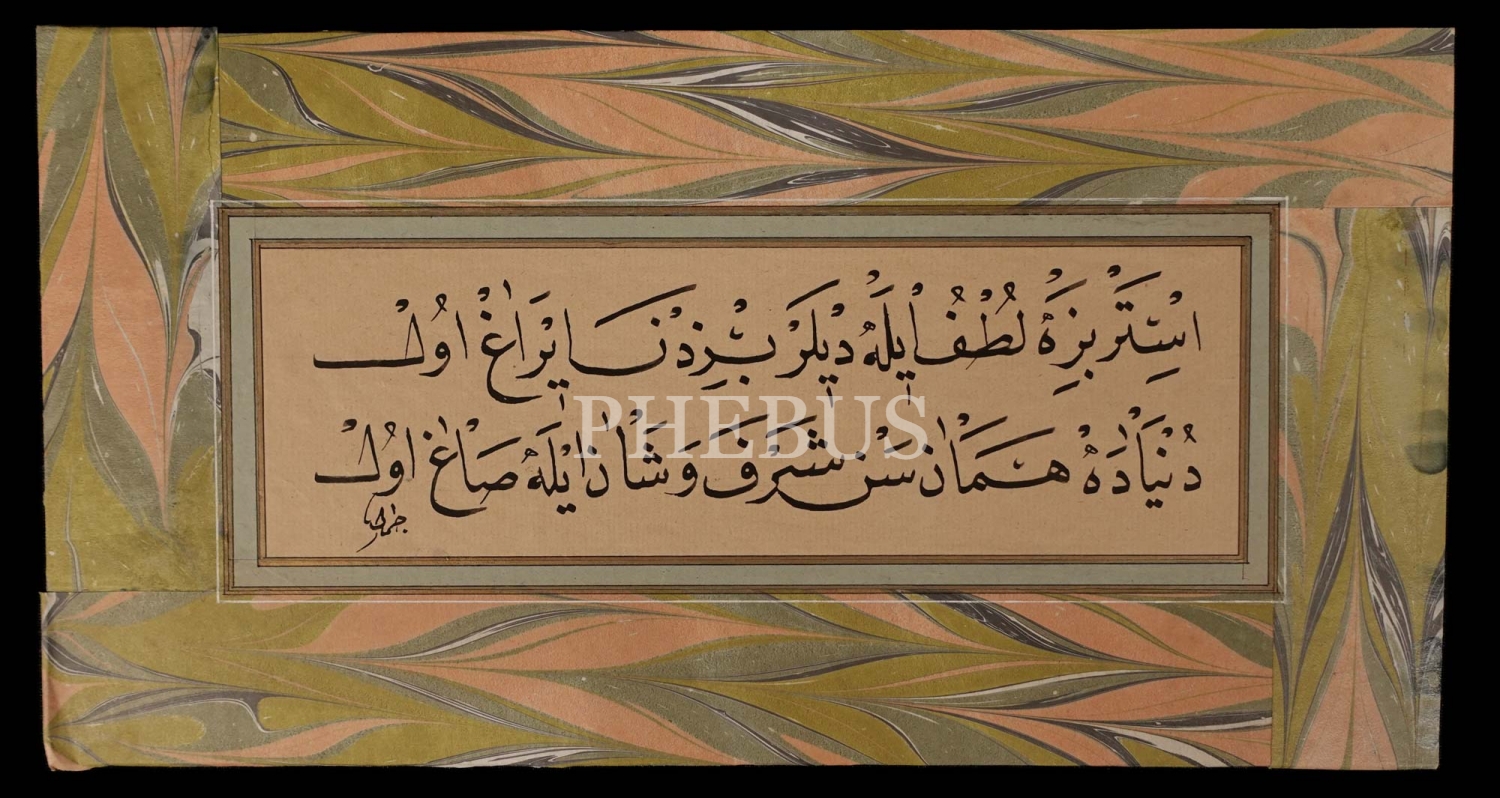 اِسْتَرْ بِزِهْ لُطْفُ ايلَهْ ديلَرْ بِزْدَنْ ايرَاغْ اُولْ
دُنْيَادَهْ هَمَانْ سَنْ شَرَفْ وَشَانْ ايلَهْ صَاغْ اُولْ
PHEBUS